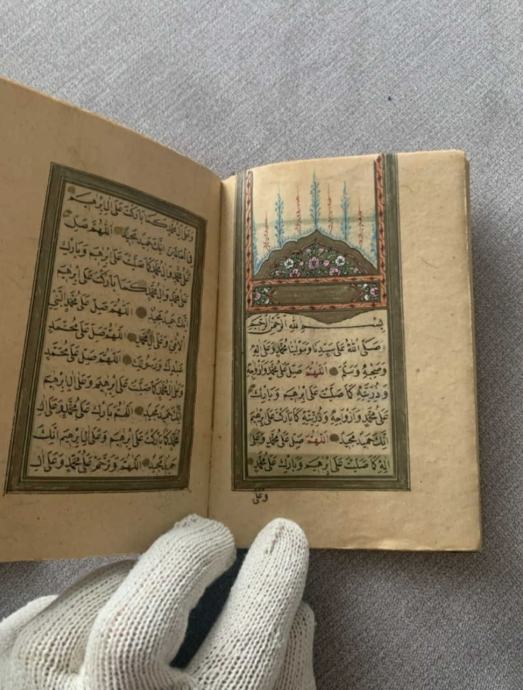 بِسْمِ اللهِ الرَّحْمٰنِ الرَّحِيمِ
صَلَّى اللهُ عَلَى سَيِّدِنَا وَمَوْلٰنَا مُحَمَّدٍ وَعَلَى اٰلِهِ
وَصَحْبِهِ وَسَلَّمَ اَللّٰهُمَّ صَلِّ عَلَى مُحَمَّدٍ وَاَزْوَاجِهِ
وَذُرِّيَّتِهِ كَمَا صَلَّيْتَ عَلَى اِبْرٰهِيمَ وَبَارِكْ
عَلَى مُحَمَّدٍ وَاَزْوَاجِهِ وَذُرِّيَّتِهِ كَمَا بَارَكْتَ عَلَى اِبْرٰهِيمَ
اِنَّكَ حَمِيدٌ مَجِيدٌ اَللّٰهُمَّ صَلِّ عَلَى مُحَمَّدٍ وَعَلَى
اٰلِهِ كَمَا صَلَّيْتَ عَلَى اِبْرٰهِيمَ وَبَارِكْ عَلَى مُحَمَّدٍ
وَعَلَى
وَعَلَى اٰلِ مُحَمَّدٍ كَمَا بَارَكْتَ عَلَى اٰلِ اِبْرٰهِيمَ
فِي الْعَالَمِينَ اِنَّكَ حَمِيدٌ مَجِيدٌ اَللّٰهُمَّ صَلِّ
عَلَى مُحَمَّدٍ وَاٰلِ مُحَمَّدٍ كَمَا صَلَّيْتَ عَلَى اِبْرٰهِيمَ وَبَارِكْ
عَلَى مُحَمَّدٍ وَاٰلِ مُحَمَّدٍ كَمَا بَارَكْتَ عَلَى اِبْرٰهِيمَ
اِنَّكَ حَمِيدٌ مَجِيدٌ اَللّٰهُمَّ صَلِّ عَلَى مُحَمَّدٍ النَّبِيِّ
الْاُمِّيِّ وَعَلَى اٰلِ مُحَمَّدٍ اَللّٰهُمَّ صَلِّ عَلَى مُحَمَّدٍ
عَبْدِكَ وَرَسُولِكَ اَللّٰهُمَّ صَلِّ عَلَى مُحَمَّدٍ
وَعَلَى اٰلِ مُحَمَّدٍ كَمَا صَلَّيْتَ عَلَى اِبْرٰهِيمَ وَعَلَى اٰلِ اِبْرٰهِيمَ
اِنَّكَ حَمِيدٌ مَجِيدٌ اَللّٰهُمَّ بَارِكْ عَلَى مُحَمَّدٍ وَعَلَى اٰلِ
مُحَمَّدٍ كَمَا بَارَكْتَ عَلَى اِبْرٰهِيمَ وَعَلَى اٰلِ اِبْرٰهِيمَ اِنَّكَ
حَمِيدٌ مَجِيدٌ اَللّٰهُمَّ وَتَرَحَّمْ عَلَى مُحَمَّدٍ وَعَلَى اٰلِ